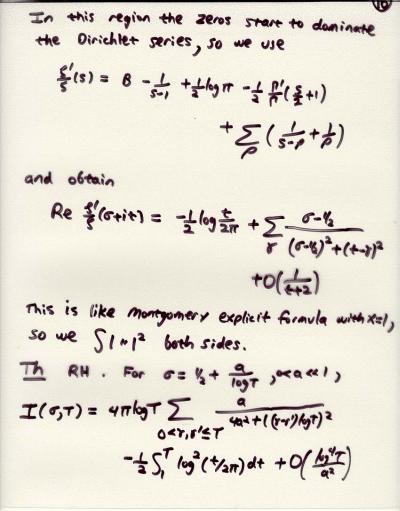 10
In this region the zeros start to dominate
the Dirichlet series, so we use
ζ'/ζ (s) = B - 1/(s-1) + 1/2 log π - 1/2 Γ'/Γ (s/2 + 1)
+ Σ_ρ (1/(s-ρ) + 1/ρ)
and obtain
Re ζ'/ζ (σ+it) = -1/2 log t/2π + Σ_γ (σ-1/2)/((σ-1/2)² + (t-γ)²)
+ O(1/(t+2))
This is like Montgomery explicit formula with x=1,
so we ∫|~|² both sides.
Th RH. For σ = 1/2 + a/log T, 0<a≪1,
I(σ,T) = 4π log T Σ_{0<γ,γ'≤T} a/(4a² + ((γ-γ') log T)²)
- 1/2 ∫_1^T log²(t/2π) dt + O(log⁴T/a²)